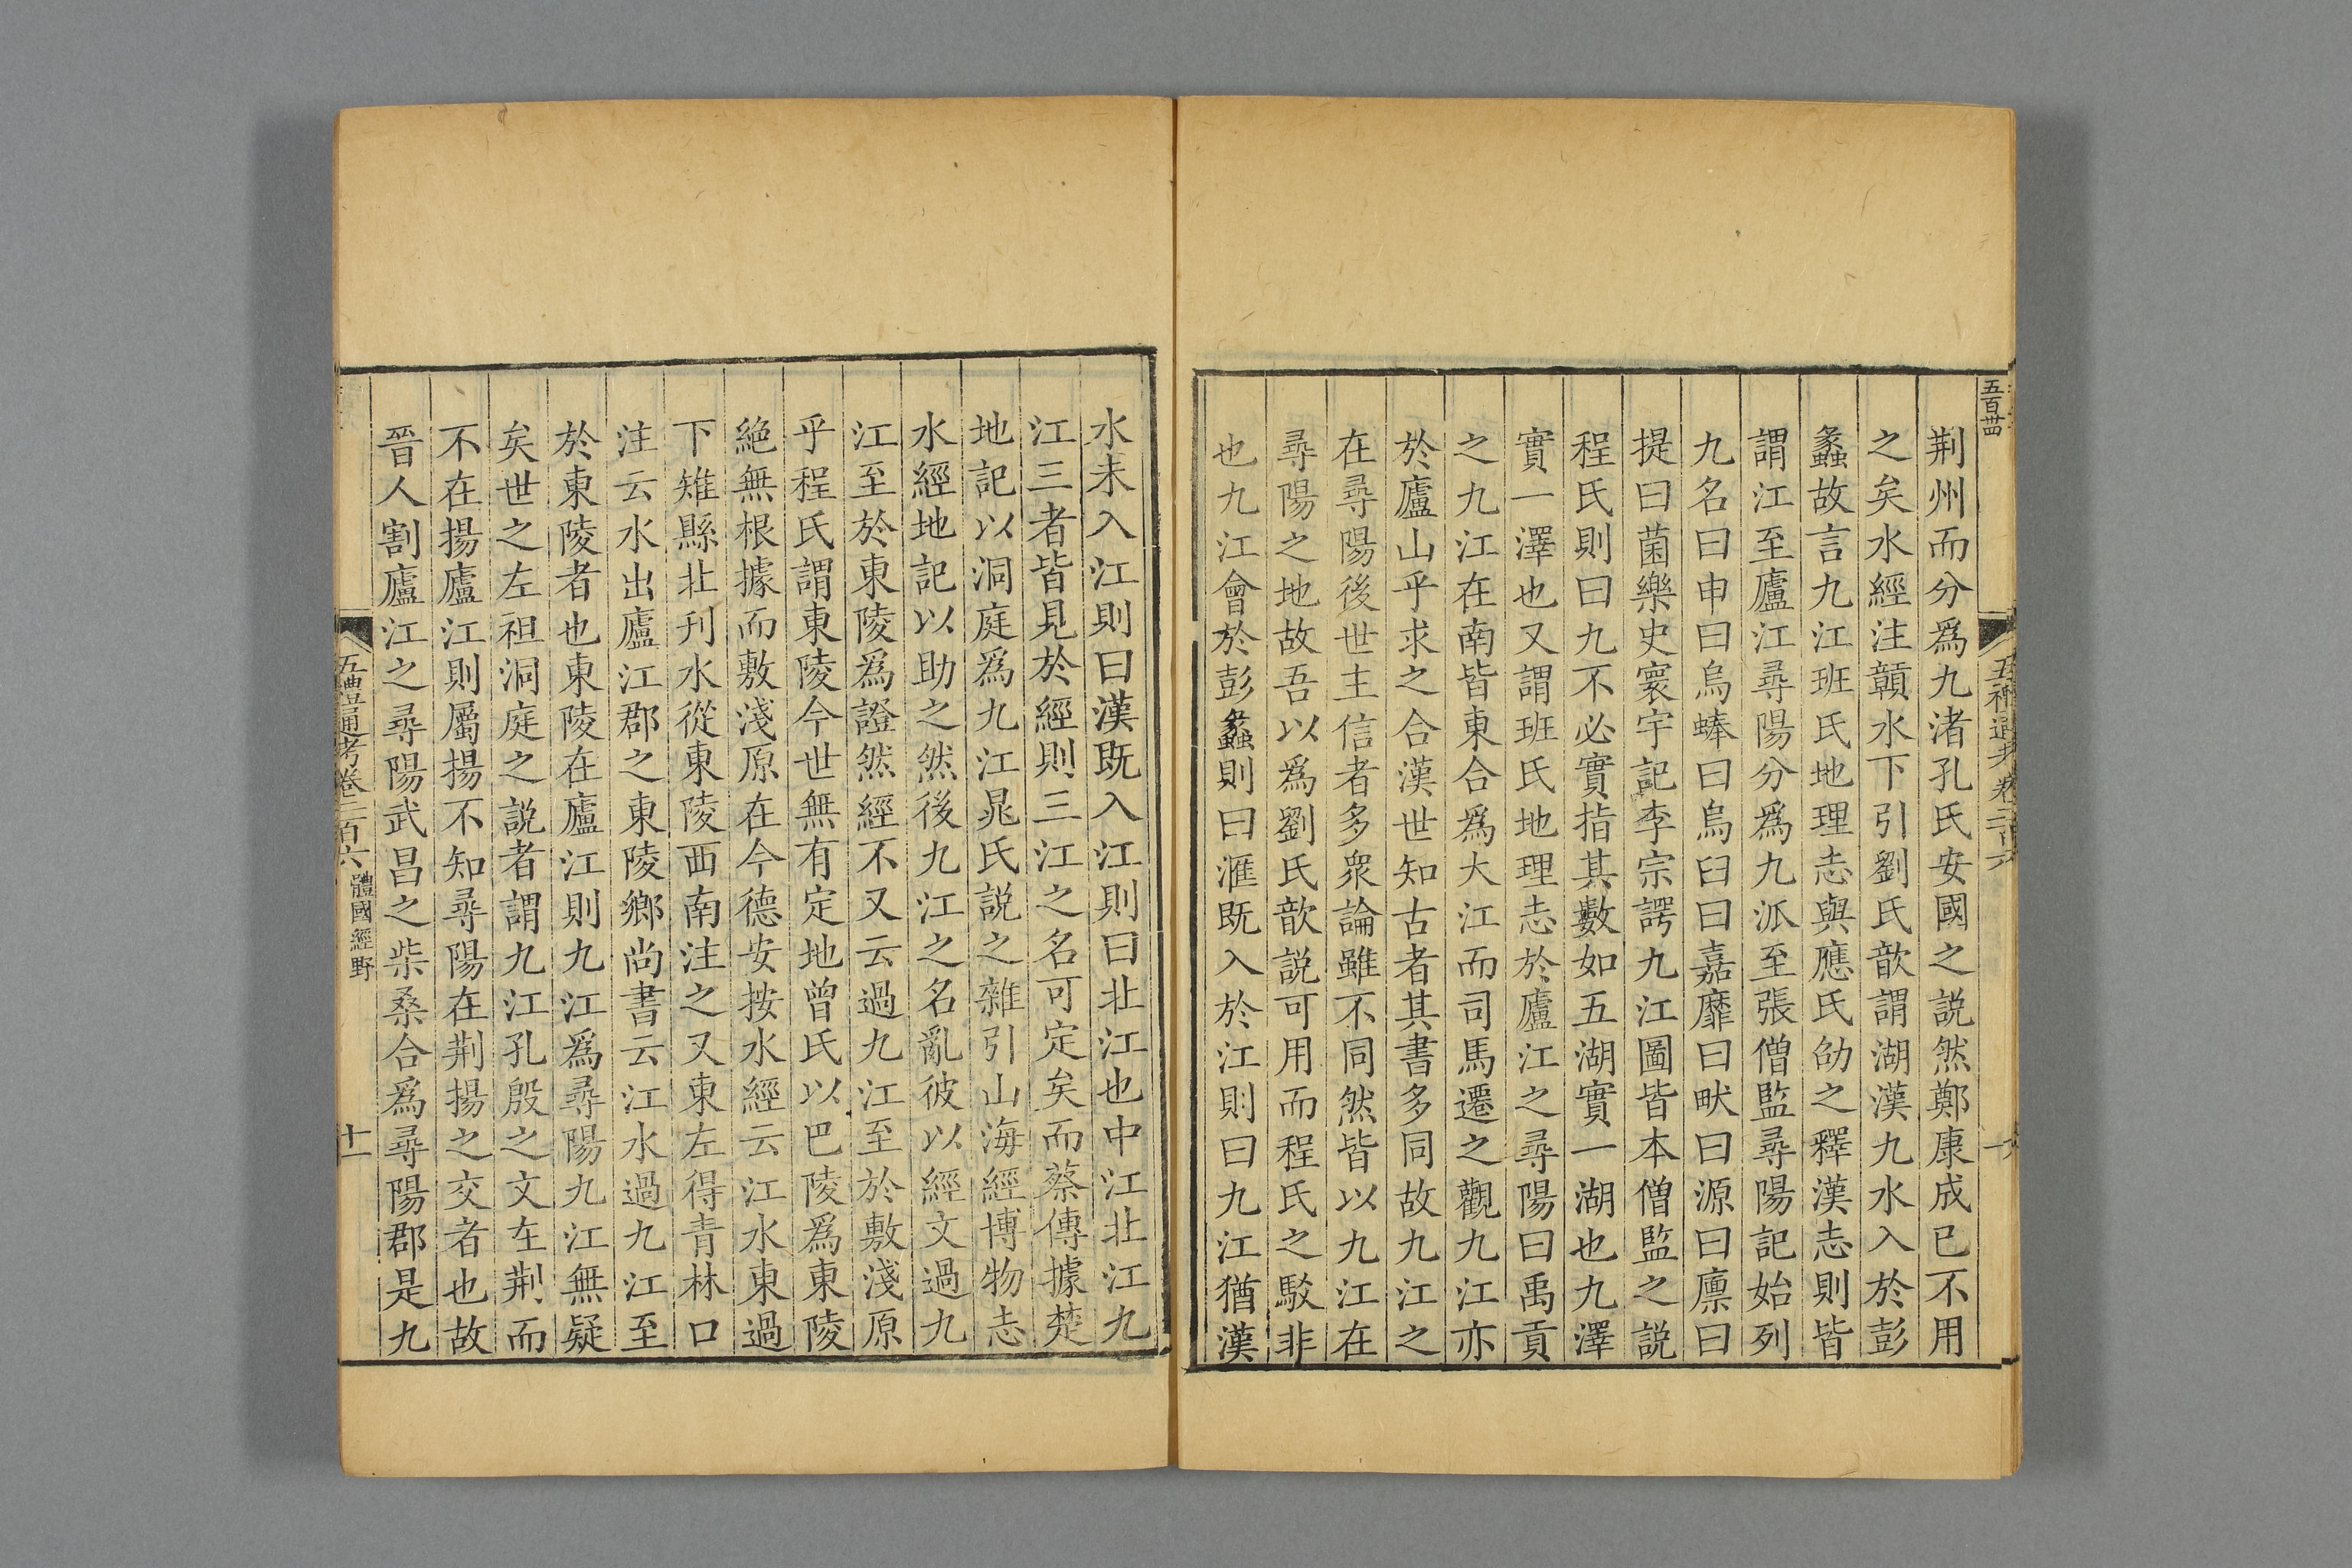 五百四
荆州而分爲九渚孔氏安國之説然鄭康成已不用
之矣水經注贛水下引劉氏歆謂湖漢九水入於彭
蠡故言九江班氏地理志與應氏劭之釋漢志則皆
謂江至廬江尋陽分爲九派至張僧監尋陽記始列
九名曰申曰烏蜯曰烏臼曰嘉靡曰畎曰源曰廩曰
提曰菌樂史寰宇記李宗諤九江圖皆本僧監之説
程氏則曰九不必實指其數如五湖實一湖也九澤
實一澤也又謂班氏地理志於廬江之尋陽曰禹貢
之九江在南皆東合爲大江而司馬遷之觀九江亦
於廬山乎求之合漢世知古者其書多同故九江之
在尋陽後世主信者多衆論雖不同然皆以九江在
尋陽之地故吾以爲劉氏歆説可用而程氏之駁非
也九江會於彭蠡則曰滙既入於江則曰九江猶漢
水未入江則曰漢既入江則曰北江也中江北江九
江三者皆見於經則三江之名可定矣而蔡傳據楚
地記以洞庭爲九江晁氏説之雜引山海經博物志
水經地記以助之然後九江之名亂彼以經文過九
江至於東陵爲證然經不又云過九江至於敷淺原
乎程氏謂東陵今世無有定地曾氏以巴陵爲東陵
絶無根據而敷淺原在今德安按水經云江水東過
下雉縣北刋水從東陵西南注之又東左得青林口
注云水出廬江郡之東陵鄉尚書云江水過九江至
於東陵者也東陵在廬江則九江爲尋陽九江無疑
矣世之左袒洞庭之説者謂九江孔殷之文在荆而
不在揚廬江則屬揚不知尋陽在荆揚之交者也故
晉人割廬江之尋陽武昌之柴桑合爲尋陽郡是九
五禮通考卷二百六 體國經野 十一